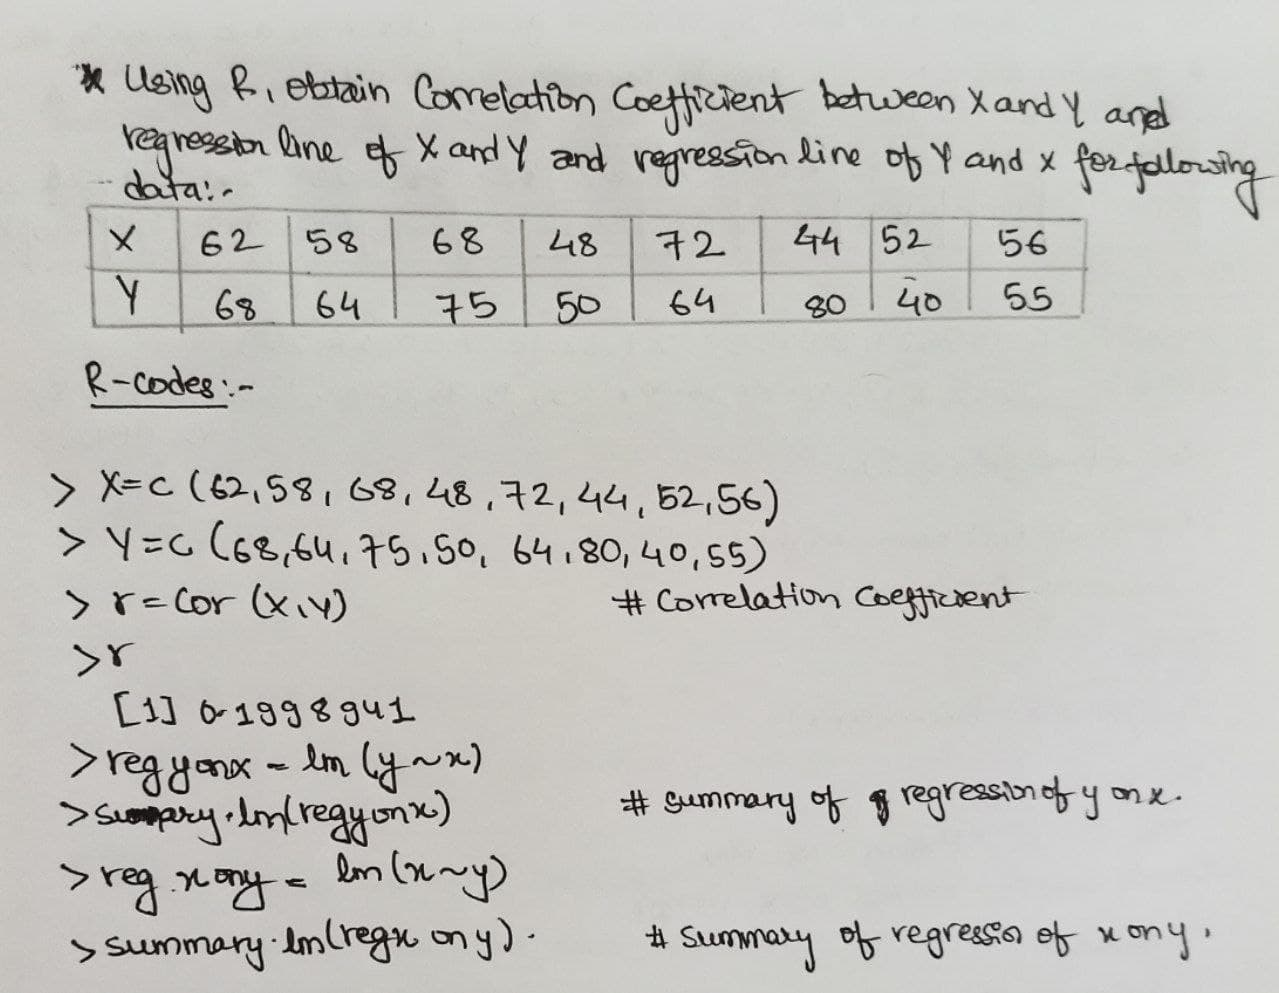 * Using R, obtain Correlation Coefficient between X and Y and
regression line of X and Y and regression line of Y and x for following
data:-
X 62 58 68 48 72 44 52 56
Y 68 64 75 50 64 80 40 55
R-codes:-
> X=c (62,58, 68, 48, 72, 44, 52,56)
> Y=c (68,64, 75,50, 64,80, 40,55)
> r=cor (x,y) # Correlation Coefficient
>r
[1] 0.1998941
>regyonx = lm (y~x)
>summary.lm(regyonx) # summary of regression of y on x.
>reg xony = lm (x~y)
> summary.lm(regx on y). # Summary of regression of x on y.